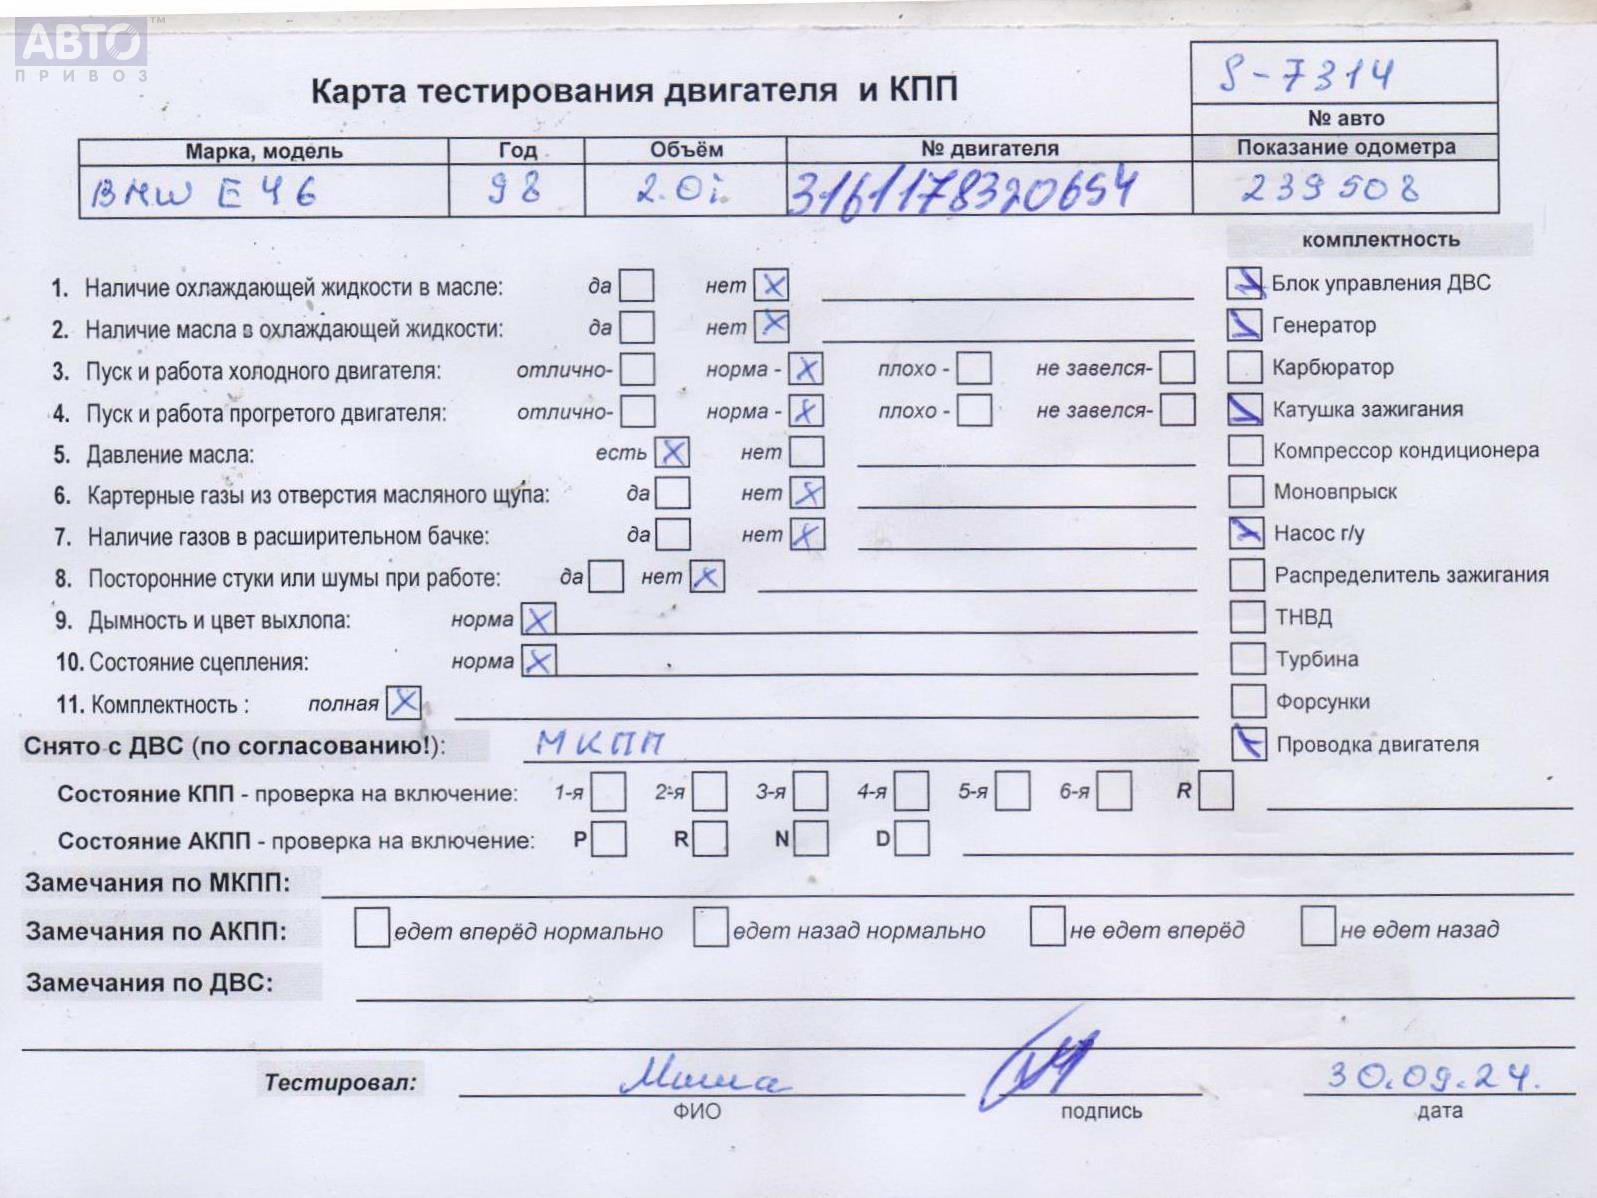 АВТО™
ПРИВОЗ
Карта тестирования двигателя и КПП
S-7314
№ авто
Марка, модель Год Объём № двигателя Показание одометра
BMW E46 98 2.0i 3161178320654 239508
комплектность
1. Наличие охлаждающей жидкости в масле: да нет X Блок управления ДВС
2. Наличие масла в охлаждающей жидкости: да нет X Генератор
3. Пуск и работа холодного двигателя: отлично- норма - X плохо - не завелся- Карбюратор
4. Пуск и работа прогретого двигателя: отлично- норма - X плохо - не завелся- Катушка зажигания
5. Давление масла: есть X нет Компрессор кондиционера
6. Картерные газы из отверстия масляного щупа: да нет X Моновпрыск
7. Наличие газов в расширительном бачке: да нет X Насос г/у
8. Посторонние стуки или шумы при работе: да нет X Распределитель зажигания
9. Дымность и цвет выхлопа: норма X ТНВД
10. Состояние сцепления: норма X Турбина
11. Комплектность : полная X Форсунки
Снято с ДВС (по согласованию!): МКПП Проводка двигателя
Состояние КПП - проверка на включение: 1-я 2-я 3-я 4-я 5-я 6-я R
Состояние АКПП - проверка на включение: P R N D
Замечания по МКПП:
Замечания по АКПП: едет вперёд нормально едет назад нормально не едет вперёд не едет назад
Замечания по ДВС:
Тестировал: Миша 30.09.24.
ФИО подпись дата